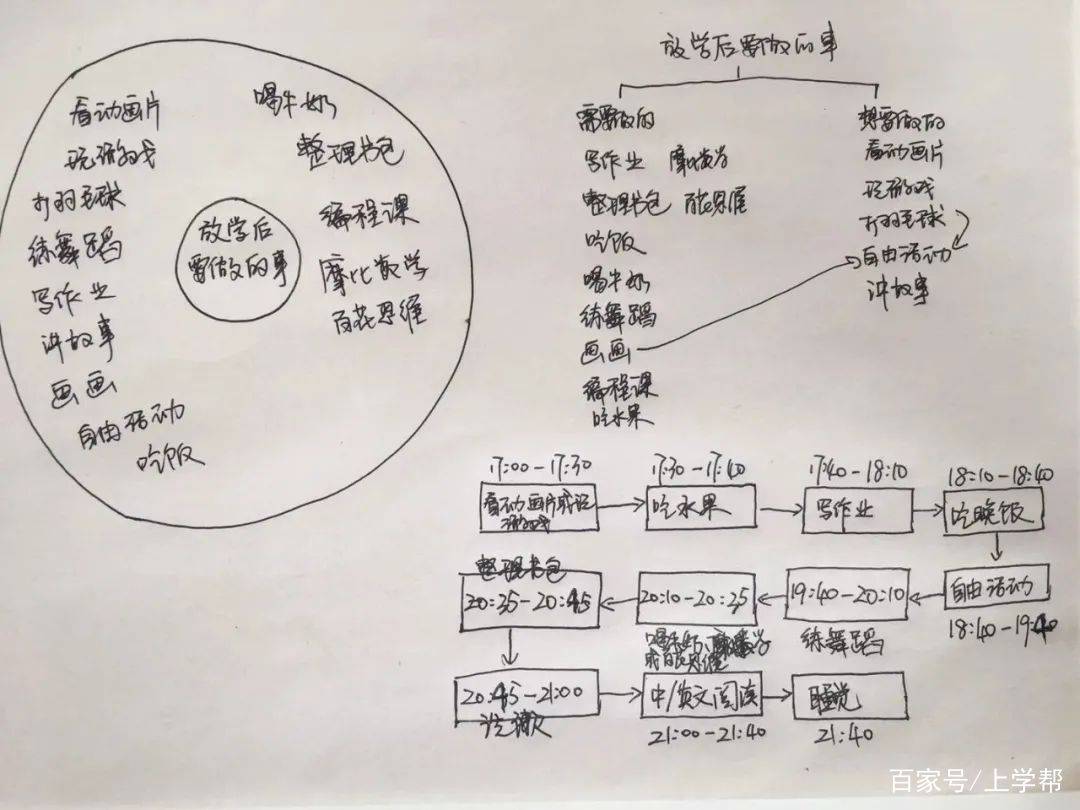 看动画片
喝牛奶
玩游戏
整理书包
打羽毛球
编程课
练舞蹈
摩比数学
写作业
百花思维
讲故事
画画
自由活动
吃饭
放学后
要做的事
放学后要做的事
需要做的
写作业 摩比数学
整理书包 百花思维
吃饭
喝牛奶
练舞蹈
画画
编程课
吃水果
想要做的
看动画片
玩游戏
打羽毛球
自由活动
讲故事
17:00-17:30
看动画片或玩
游戏
17:30-17:40
吃水果
17:40-18:10
写作业
18:10-18:40
吃晚饭
自由活动
18:40-19:40
19:40-20:10
练舞蹈
20:10-20:35
喝牛奶、摩比数学
或百花思维
整理书包
20:35-20:45
20:45-21:00
洗漱
中/英文阅读
21:00-21:40
睡觉
21:40
百家号/上学帮